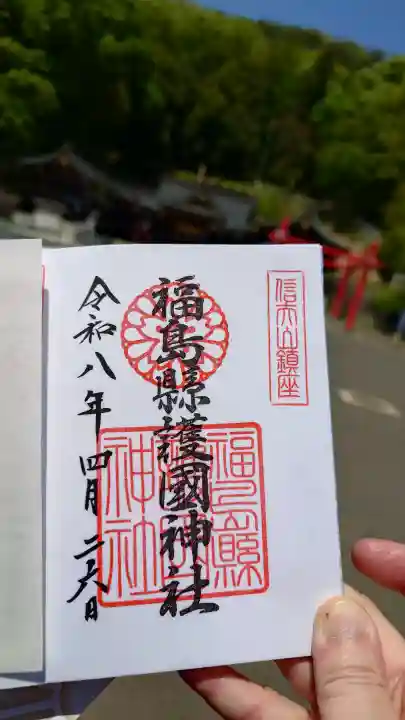 信夫山鎮座
福島縣護國神社
福島縣護國神社
令和八年四月二六日